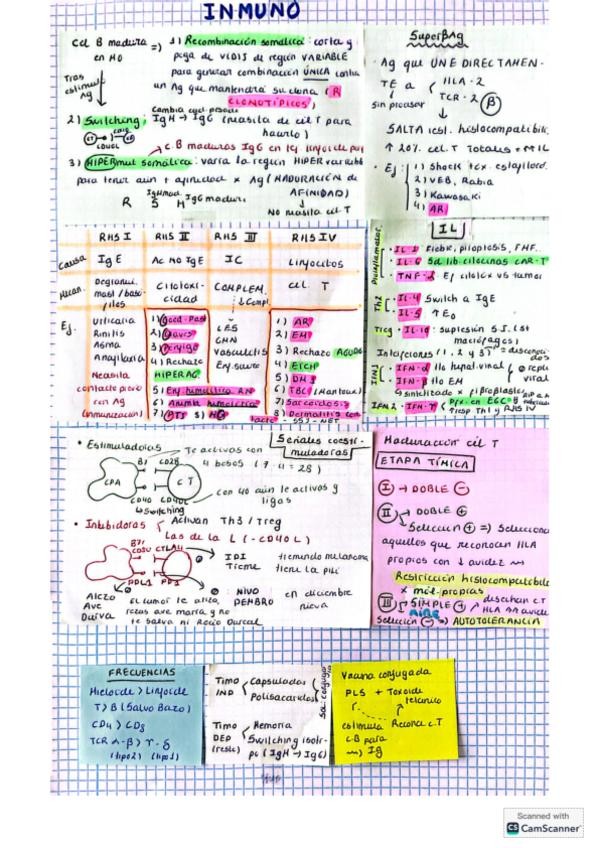 INMUNO
Cel B madura
en HO
=)
Tras
estimulo
Ag
1) Recombinación somática: corta y
pega de VLDJS de región VARIABLE
para generar combinación ÚNICA contra
un Ag que mantendrá su clona (R
CLONOTÍPICOS)
Cambia
2) Switching: IgM → IgG (necesita de cél T para
hacerlo)
CD40L
C B maduras IgG en
3) HIPERmut somática: varía la región HIPERvariable
para tener aún + afinidad x Ag (MADURACIÓN de
AFINIDAD)
R S H IgG madura
No necesita cel T
SuperAg
Ag que UNE DIRECTAMEN-
TE a
HLA-2
TCR-2 (β)
sin procesar
SALTA rest. histocompatibil.
↑ 20% cel. T totales
Ej:
1) Shock tox. estafiloco.
2) VEB, Rabia
3) Kawasaki
4) AR
RHS I
RHS II
RHS III
RHS IV
Causa
IgE
Ac No IgE
IC
Linfocitos
Mecan.
Degranul.
mast/baso/
filos
Citotoxi-
cidad
COMPLEM.
↓ Compl.
cel. T
Ej.
Urticaria
Rinitis
Asma
Anafilaxia
Necesita
contacto previo
con Ag
(inmunización)
1) Good-Past
2) Graves
3) Pénfigo
4) Rechazo
HIPERAG
5) Enf. hemolítica RN
6) Anemia hemolítica
7) PTI 8) MG
LES
GMN
Vasculitis
Enf. suero
1) AR
2) EM
3) Rechazo AGUDO
4) EICH
5) DM1
6) TBC (Mantoux)
7) Sarcoidosis
8) Dermatitis con-
tacto - SSJ - NET
IL
Proinflamator.
IL-1: Fiebre, piloptosis, FHF.
IL-6: Sd. lib. citocinas CAR-T
TNF-α: Ef citotóx vs tumor
Th2
IL-4: Switch a IgE
IL-5: ↑ Eo
Treg
IL-10: supresión S.I. (st
macrófagos)
IFN1
IFN-α: tto hepat. viral
IFN-β: tto EM
↓ replic
viral
sintetizado x fibroblastos
IFN2
IFN-γ
Px. en EGC
resp Th1 y RHS IV
Señales coesti-
muladoras
Estimuladoras
Te activas con
4 besos (7·4 = 28)
B7 CD28
CPA
CT
CD40 CD40L
↳Switching
con 40 aún te activas y
ligas
Inhibidoras
Activan Th3/Treg
Las de la L (-CD40L)
B7
CTLA4
PDL1 PD1
IPI
Treme
tremendo melanoma
tiene la pili
NIVO
PEMBRO
en diciembre
nieva
Atezo
Ave
Durva
El tumor te atiza,
rezas ave maría y no
te salva ni Rocío Durcal
Maduración cél T
ETAPA TÍMICA
I → DOBLE ⊖
II → DOBLE ⊕
Selección ⊕ =) Selecciona
aquellos que reconocen HLA
propios con ↓ avidez
Restricción histocompatibilid
x mol. propias
III → SIMPLE ⊕
AIRE
descartan CT
HLA avidez
Selección ⊖ → AUTOTOLERANCIA
FRECUENCIAS
Mieloide > Linfoide
T > B (Salvo Bazo)
CD4 > CD8
TCR α-β > γ-δ
(tipo2) (tipo1)
Timo
IND
Capsulados
Polisacáridos
Timo
DEP
(resto)
Memoria
Switching isoti-
po (IgM → IgG)
Vacuna conjugada
PLS + Toxoide
tetánico
estimula
C·B para
Ig
Recono c.T
Scanned with
CS CamScanner